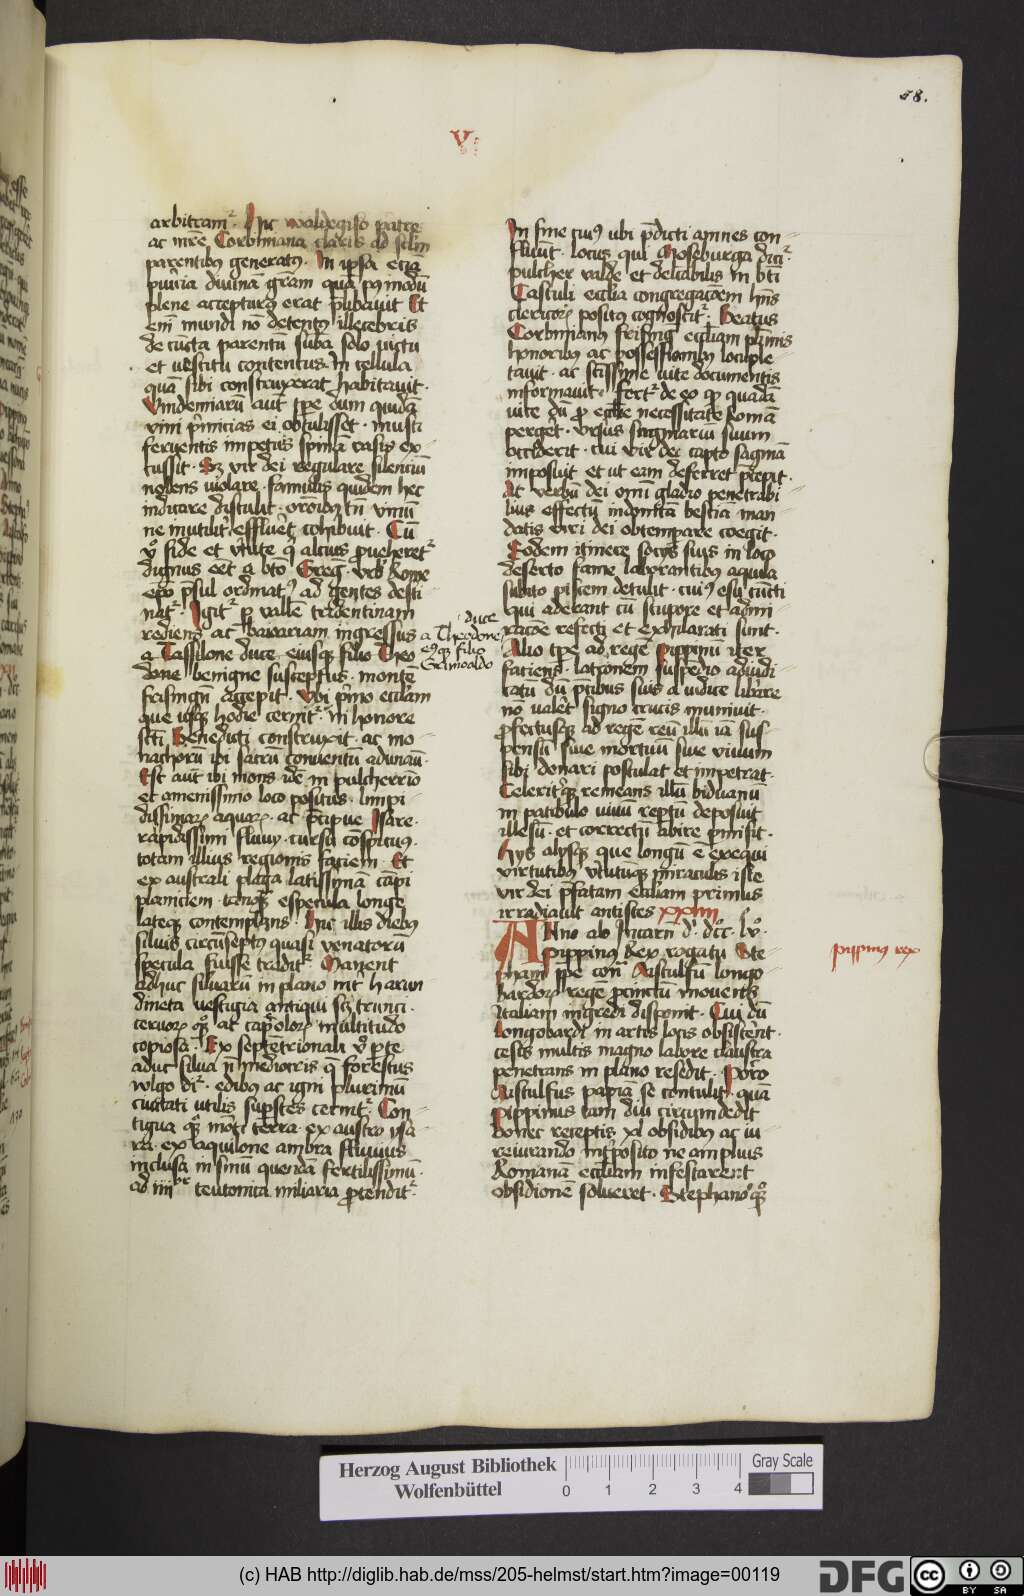 58.
V.
arbitramr. Hic waldegiso patre
ac mr̄e Corbiniana claris ad sclm̄
parentibꝫ generatꝰ. In ipsa eciā
pueria diuinā grām quā pꝰmodū
plene accepturꝰ erat p̄libauit Et
em̄ mundi nō detentꝰ illecebris
de cūcta parentū suba solo victu
et vestitu contentus in cellula
quā sibi construxerat habitauit.
Vindemiarū aut tpe dum quidā
vini p̄micias ei obtulisset. musti
feruentis impetus spinā vasis ex
cussit. Sꝫ vir dei regulare silenciū
nolens violare. famulis quidem hec
indicare distulit. oroibꝫ tn̄ vinū
ne inutilit̄ efflueret cohibuit. Cū
v̊ fide et v̄tute
dignus eet a bto Greg. vrb Rome
epo p̄sul ordinatꝰ ad gentes desti
natr. Igitr p vallē tridentinam
rediens ac bawariam ingressus
a Tassilone duce eiusqꝫ filio Theo
done benigne susceptus. montē
frisingn̄ adepit. Vbi p̄mo eccl̄iam
que vsqꝫ hodie cernitr in honore
scti Benedicti construxit. ac mo
nachorū ibi sacrū conuentū adunau͞.
Est aut ibi mons ide in pulcherrīo
et amenissimo loco positus. limpi
dissimarꝫ aquarꝫ. ac p̄cipue Isare.
rapidissimi fluuij. cursu cōspicuus.
totam illius regionis faciem. Et
ex australi plaga latissimā cāpi
planiciem. tanqꝫ especula longe
lateqꝫ contemplans. Hic illis diebꝫ
siluis circūseptꝰ quasi venatorū
specula fuisse traditr. Manent
adhuc siluarū in plano int̄ harun
dineta vestigia antiqui scꝫ trunci.
ceruorꝫ qꝫ ac cap̄olorꝫ multitudo
copiosa. Ex septētrionali v̊ pte
aduc silua nō mediocris q̄ forestus
wlgo dr̄. edibꝫ ac igni plurimū
ciuitati utilis supstes cernitr. Con
tigua qꝫ mōti terra. ex austro ysa
ra. ex aquilone ambra fluuius
inclusa in sinū quendā fertilissimū.
ad iiiior teutonica miliaria protenditr.
duce
a Theodone
eiusqꝫ filio
Grimoaldo
In fine cuiꝰ ubi p̄dicti amnes con
fluūt. locus qui Moseburga dicitr.
pulcher valde et delicabilis in bti
Castuli ecclia congregacōem hn̄s
clericorꝫ positus cognoscitr. Beatus
Corbinianus frising eccliam plimis
honoribus ac possessionibus locuple
tauit. ac scissime uite documentis
informauit. Fertr de eo qꝫ quadā
vice dū p eccl̄ie necessitate Romā
pergēt. vrsus sagmariū suum
occiderit. cui vir dei capto sagmā
imposuit et ut eam deferret p̄cepit.
At verbū dei omī gladio penetrabi
lius effectū indomita bestia man
datis viri dei obtempare coegit.
Eodem itinere socijs suis in loco
deserto fame laborantibꝫ aquila
subito piscem detulit. cuiꝰ esu cūcti
qui aderant cū stupore et admi
racōe refecti et exhilarati sunt.
Alio tpe ad regē Pippinū iter
faciens. latronem suspēdio adiudi
catū dū p̄cibus suis a iudice librare
nō valēt signo crucis muniuit.
profectusqꝫ ad regē reū illū iā sus
pensū siue mortuū siue viuum
sibi donari postulat et impetrat.
Celeritqꝫ remeans illū biduanū
in patibulo viuū reptū deposuit
illesū. et correctū abire p̄misit.
Hijs alijsqꝫ que longū ē exequi
virtutibꝫ
vir dei p̄fatam eccliam primus
irradiauit antistes xxiiii
Anno ab incarn̄ dn̄. dcc. lv̊.
Pippinus Rex rogatu Ste
phani pape con̄ Aistulfū longo
bardorꝫ regē procinctū mouens
Italiam ingredi disponit. Cui dū
Longobardi in artis locis obsistēnt.
cesis multis magno labore claustra
penetrans in plano resedit. Porro
Aistulfus papiā se contulit. quā
Pippinus tam diu circumdedit
donec receptis xl obsidibꝫ ac iu
reiurando int̄posito ne amplius
Romanā eccliam infestarent
obsidionē solueret. Stephanoqꝫ
pippinus rex
Herzog August Bibliothek
Wolfenbüttel
0 1 2 3 4
Gray Scale
(c) HAB http://diglib.hab.de/mss/205-helmst/start.htm?image=00119
DFG
cc BY SA